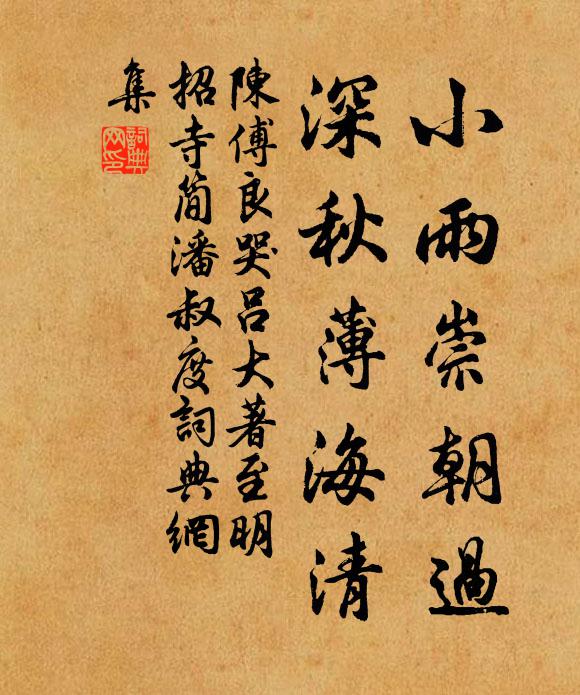 小雨崇朝過
深秋薄海清
陳傅良哭呂大著至明
招寺簡潘叔度詞典網
集
詞典網印